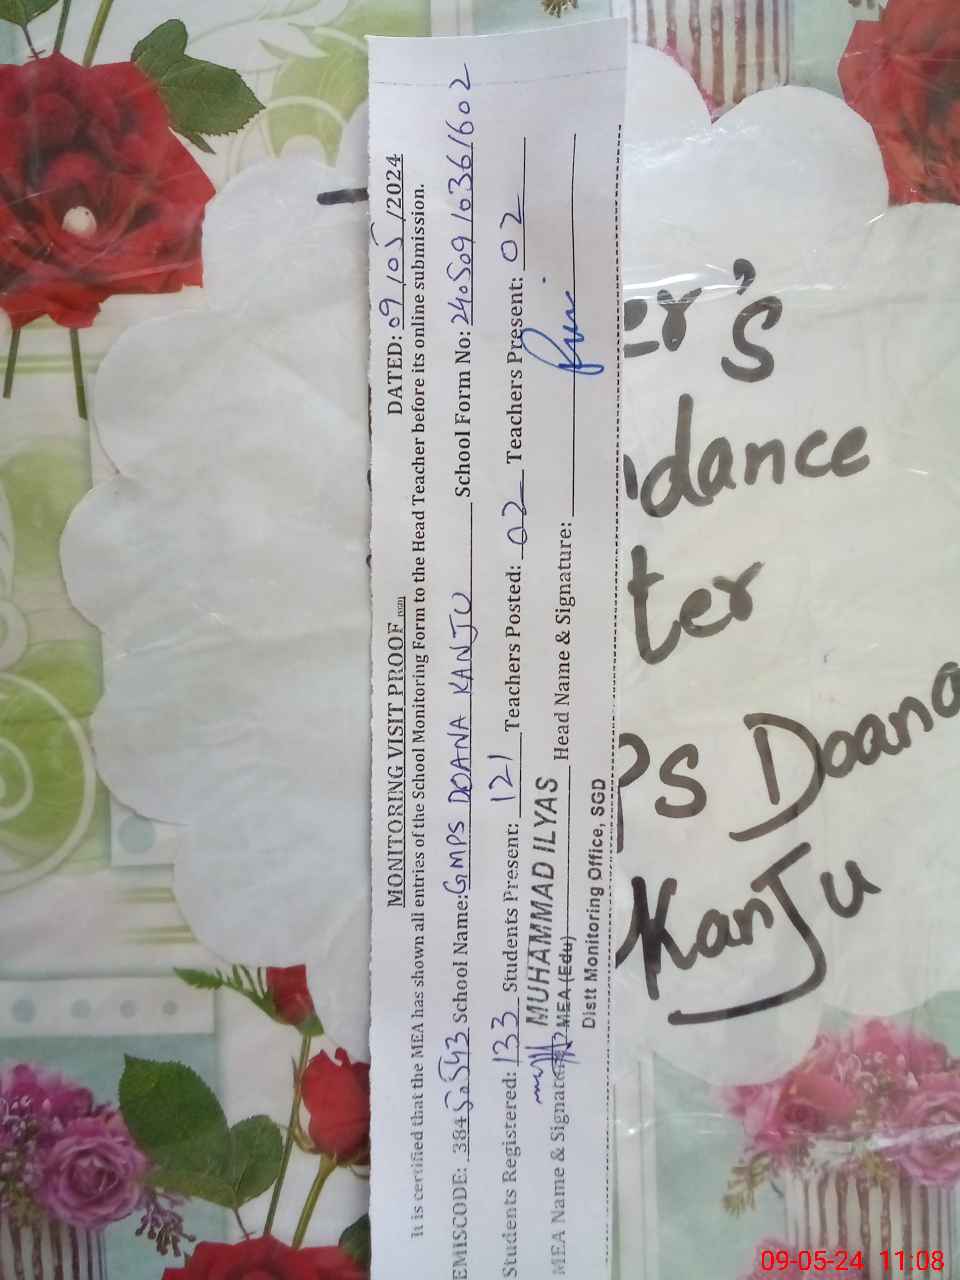 MONITORING VISIT PROOF (SGD) DATED: 09/05/2024
It is certified that the MEA has shown all entries of the School Monitoring Form to the Head Teacher before its online submission.
EMISCODE: 38450543 School Name: GMPS DOANA KANJU School Form No: 24050910361602
Students Registered: 133 Students Present: 121 Teachers Posted: 02 Teachers Present: 02
MUHAMMAD ILYAS
MEA Name & Signature: MEA (Edu) Head Name & Signature:
Distt Monitoring Office, SGD
er's
dance
ter
PS Doana
KanJu
09-05-24 11:08